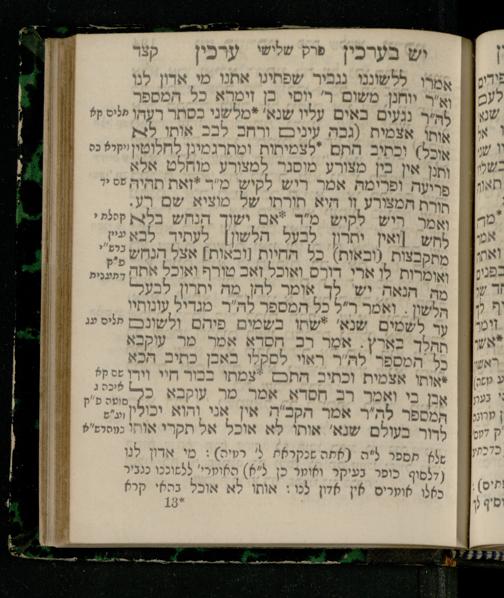 יש בערכין פרק שלישי ערכין קצד
אמרו ללשוננו נגביר שפתינו אתנו מי אדון לנו
וא"ר יוחנן משום ר' יוסי בן זימרא כל המספר
לה"ר נגעים באים עליו שנא' *מלשני בסתר רעהו
אותו אצמית (גבה עינים ורחב לבב אותו לא
אוכל) וכתיב התם *לצמיתות ומתרגמינן לחלוטין
ותנן אין בין מצורע מוסגר למצורע מוחלט אלא
פריעה ופרימה אמר ריש לקיש מ"ד *זאת תהיה
תורת המצורע זו היא תורתו של מוציא שם רע.
ואמר ריש לקיש מ"ד *אם ישוך הנחש בלא
לחש [ואין יתרון לבעל הלשון] לעתיד לבא
מתקבצות (ובאות) כל החיות [ובאות] אצל הנחש
ואומרות לו ארי דורס ואוכל זאב טורף ואוכל אתה
מה הנאה יש לך אומר להן מה יתרון לבעל
הלשון. ואמר ר"ל כל המספר לה"ר מגדיל עונותיו
עד לשמים שנא' *שתו בשמים פיהם ולשונם
תהלך בארץ. אמר רב חסדא אמר מר עוקבא
כל המספר לה"ר ראוי לסקלו באבן כתיב הכא
*אותו אצמית וכתיב התם *צמתו בבור חיי וידו
אבן בי ואמר רב חסדא אמר מר עוקבא כל
המספר לה"ר אמר הקב"ה אין אני והוא יכולין
לדור בעולם שנא' אותו לא אוכל אל תקרי אותו
תלים קא
ויקרא כה
שם יד
קהלת י
ועיין
ברש"י
פ"ק
דתענית
תלים עג
שם קא
איכה ג
סוטה פ"ק
וע"ש
במהרש"א
שלא תספר ל"ה (אתה שנקראת ל' רמיה): מי אדון לנו
(דלסוף כופר בעיקר ואומר כן ל"א) האומרי' ללשוננו נגביר
כאלו אומרים אין אדון לנו: אותו לא אוכל בהאי קרא
13*